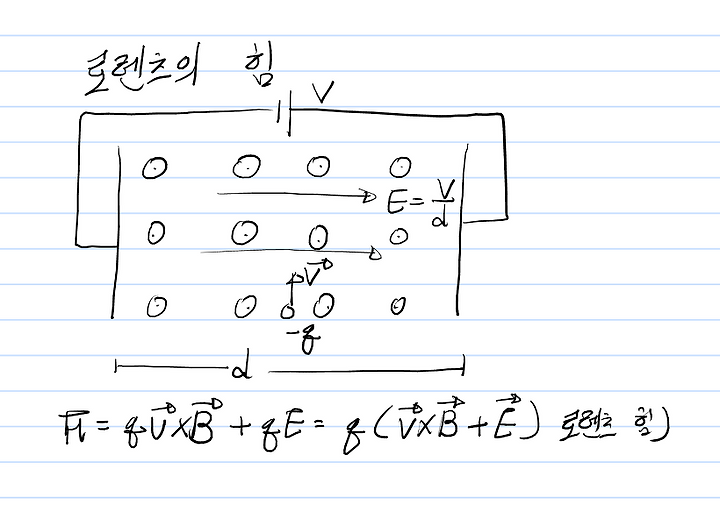 로렌츠의 힘
V
E = V/d
v⃗
-q
d
F = qv⃗×B⃗ + qE = q(v⃗×B⃗ + E⃗) 로렌츠 힘)